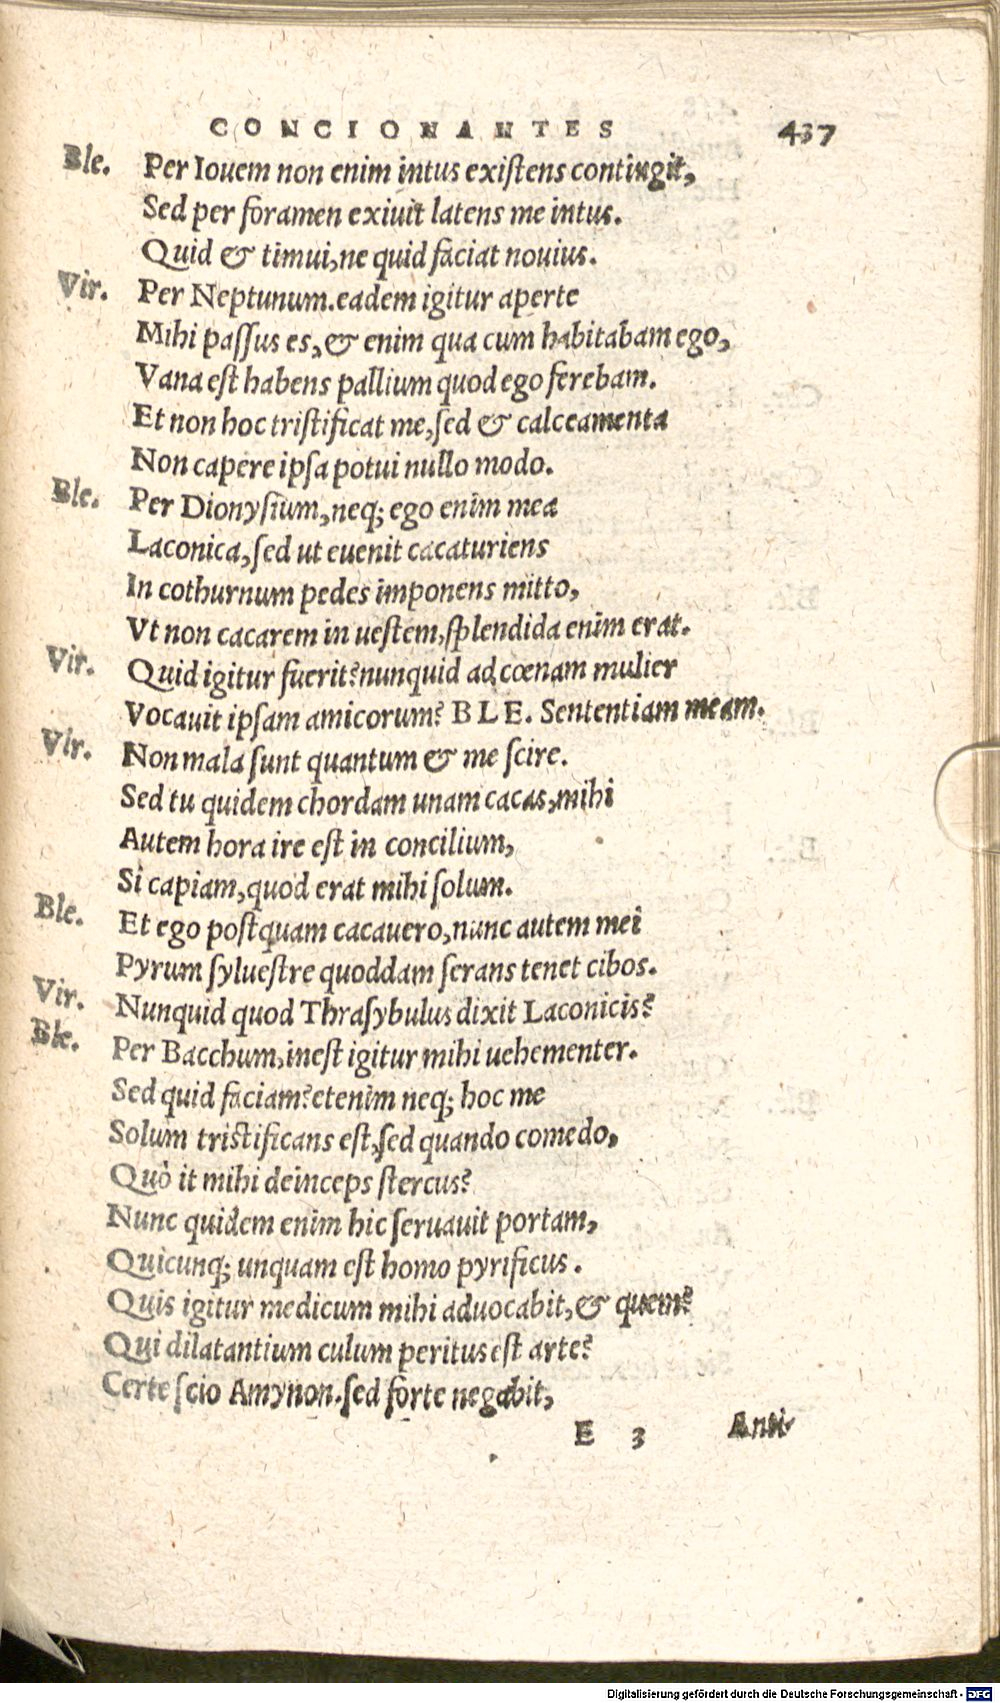 CONCIONANTES 437
Ble. Per Iouem non enim intus existens contingit,
Sed per foramen exiuit latens me intus.
Quid & timui, ne quid faciat nouius.
Vir. Per Neptunum. eadem igitur aperte
Mihi passus es, & enim qua cum habitabam ego,
Vana est habens pallium quod ego ferebam.
Et non hoc tristificat me, sed & calceamenta
Non capere ipsa potui nullo modo.
Ble. Per Dionysium, neq; ego enim mea
Laconica, sed ut euenit cacaturiens
In cothurnum pedes imponens mitto,
Vt non cacarem in uestem, splendida enim erat.
Vir. Quid igitur fuerit? nunquid ad cœnam mulier
Vocauit ipsam amicorum? BLE. Sententiam meam.
Vir. Non mala sunt quantum & me scire.
Sed tu quidem chordam unam cacas, mihi
Autem hora ire est in concilium,
Si capiam, quod erat mihi solum.
Ble. Et ego postquam cacauero, nunc autem mei
Pyrum syluestre quoddam serans tenet cibos.
Vir. Nunquid quod Thrasybulus dixit Laconicis?
Ble. Per Bacchum, inest igitur mihi uehementer.
Sed quid faciam? etenim neq; hoc me
Solum tristificans est, sed quando comedo,
Quò it mihi deinceps stercus?
Nunc quidem enim hic seruauit portam,
Quicunq; unquam est homo pyrificus.
Quis igitur medicum mihi aduocabit, & quem?
Qui dilatantium culum peritus est arte?
Certe scio Amynon. sed forte negabit,
E 3 Anti-
Digitalisierung gefördert durch die Deutsche Forschungsgemeinschaft - DFG